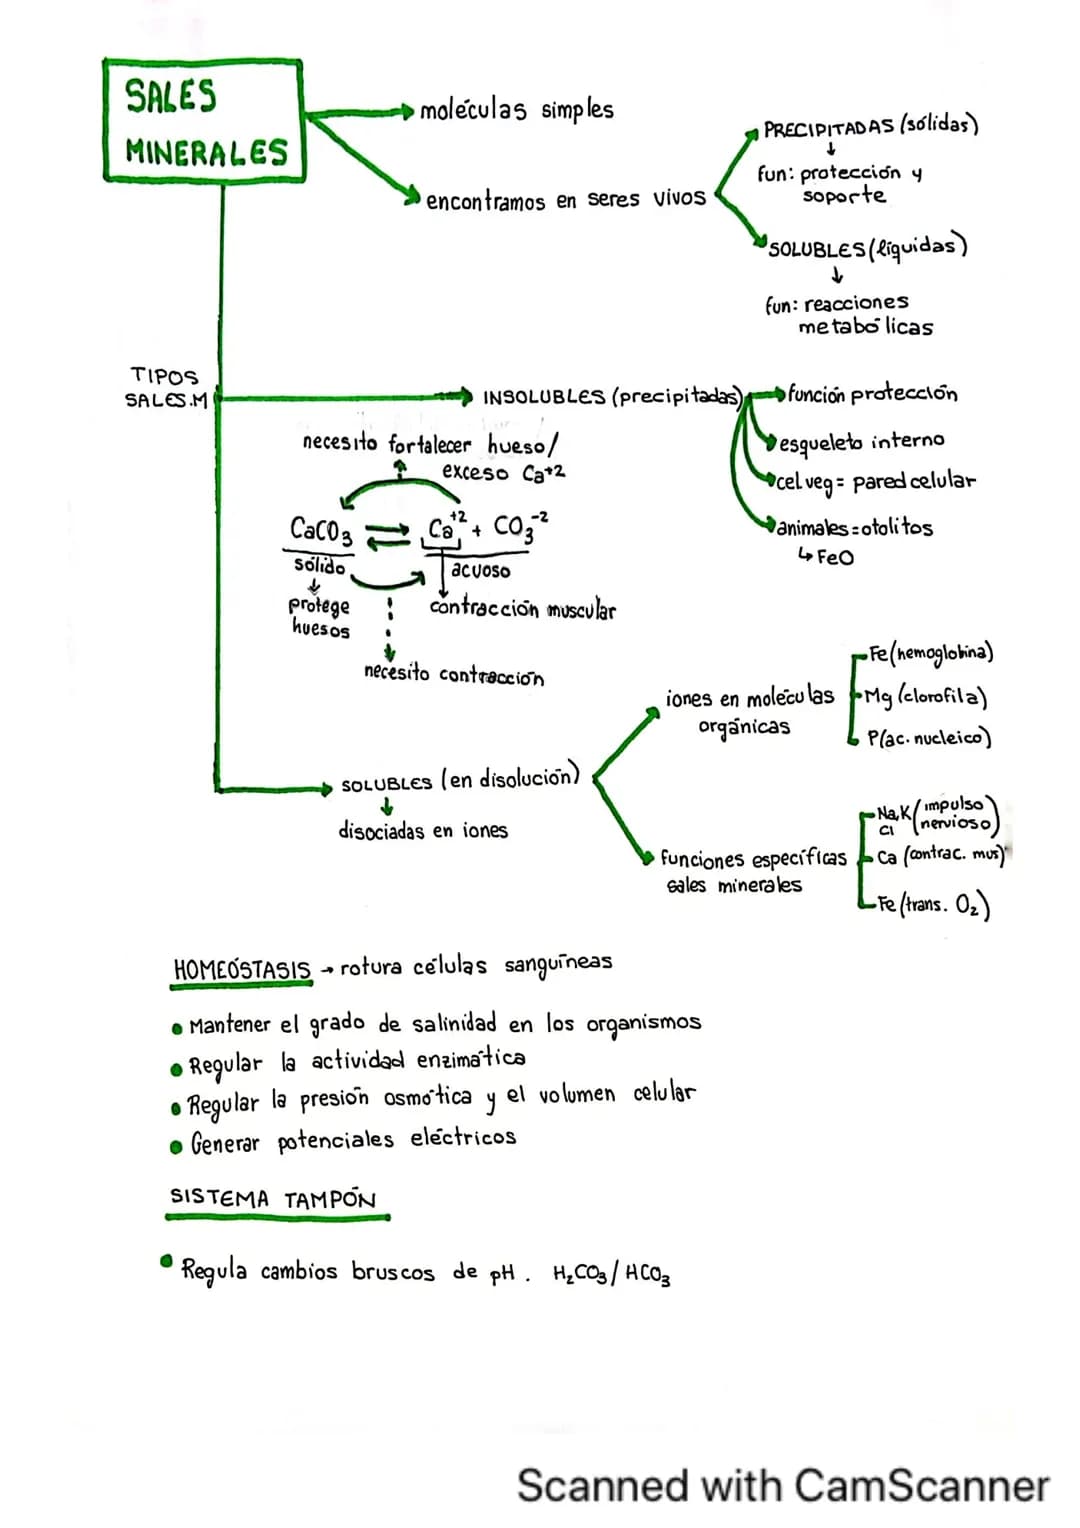 SALES
MINERALES
moléculas simples
encontramos en seres vivos
PRECIPITADAS (sólidas)
↓
fun: protección y
soporte
SOLUBLES (líquidas)
↓
fun: reacciones
metabólicas
TIPOS
SALES.M
INSOLUBLES (precipitadas)
función protección
esqueleto interno
cel veg = pared celular
animales = otolitos
↳ FeO
necesito fortalecer hueso/
exceso Ca+2
CaCO₃ ⇌ Ca⁺² + CO₃⁻²
sólido
acuoso
protege
huesos
contracción muscular
necesito contracción
SOLUBLES (en disolución)
↓
disociadas en iones
iones en moléculas
orgánicas
Fe (hemoglobina)
Mg (clorofila)
P (ac. nucleico)
funciones específicas
sales minerales
Na, K (impulso
Cl nervioso)
Ca (contrac. mus)
Fe (trans. O₂)
HOMEÓSTASIS → rotura células sanguíneas
• Mantener el grado de salinidad en los organismos
• Regular la actividad enzimática
• Regular la presión osmótica y el volumen celular
• Generar potenciales eléctricos
SISTEMA TAMPÓN
• Regula cambios bruscos de pH. H₂CO₃/HCO₃
Scanned with CamScanner